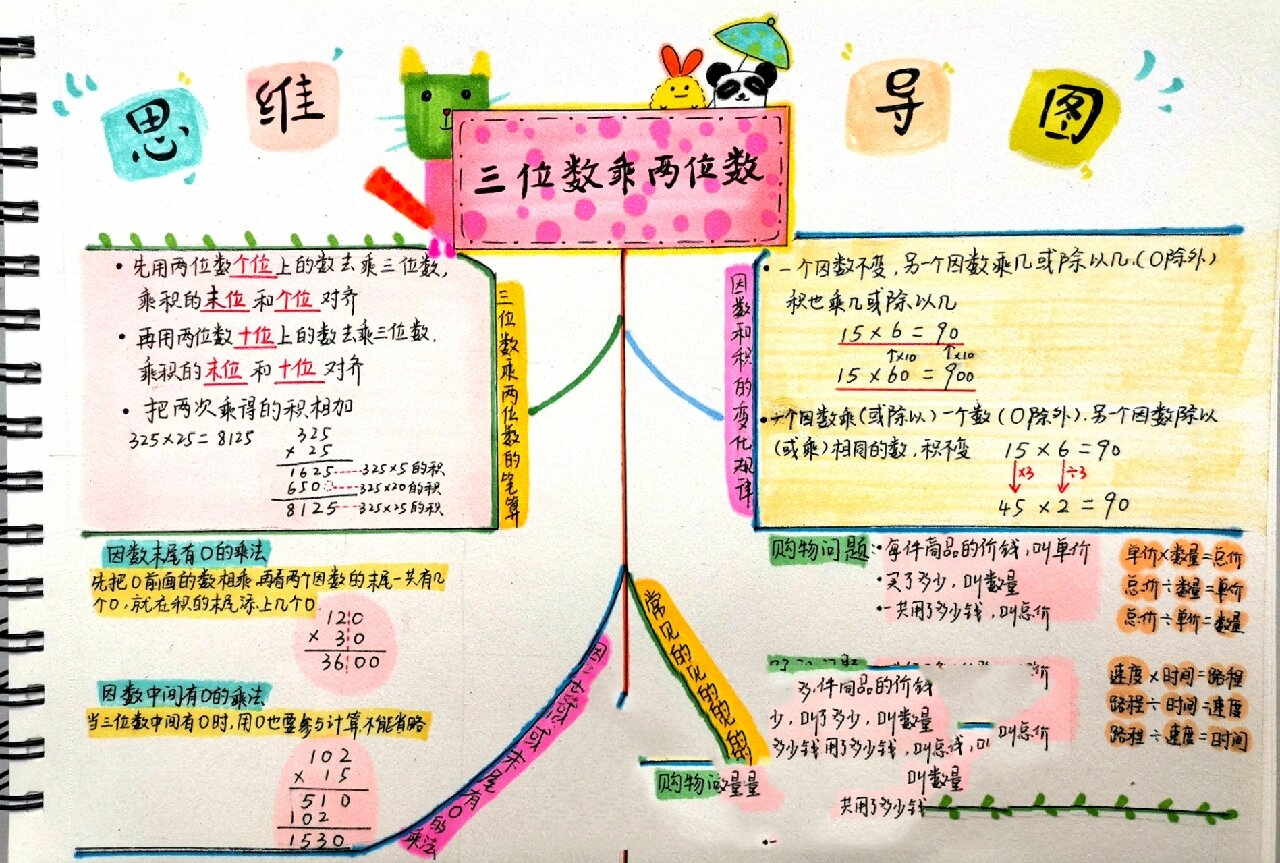 思维导图
三位数乘两位数
三位数乘两位数的笔算
·先用两位数个位上的数去乘三位数,
乘积的末位和个位对齐
·再用两位数十位上的数去乘三位数,
乘积的末位和十位对齐
·把两次乘得的积相加
325×25=8125
325
×25
1625 325×5的积
650 325×20的积
8125 325×25的积
因数和积的变化规律
·一个因数不变,另一个因数乘几或除以几(0除外)
积也乘几或除以几
15×6=90
↑×10 ↑×10
15×60=900
·一个因数乘(或除以)一个数(0除外),另一个因数除以
(或乘)相同的数,积不变
15×6=90
↓×3 ↓÷3
45×2=90
因数末尾有0的乘法
先把0前面的数相乘,再看两个因数的末尾一共有几
个0,就在积的末尾添上几个0.
120
×30
3600
因数中间有0的乘法
当三位数中间有0时,用0也要参与计算,不能省略
102
×15
510
102
1530
末尾有0的乘法
常见的
购物问题:·每件商品的价钱,叫单价
·买了多少,叫数量
·一共用了多少钱,叫总价
单价×数量=总价
总价÷数量=单价
总价÷单价=数量
件商品的价钱
少,叫了多少,叫数量
多少钱用了多少钱,叫总
叫总价
叫数量
共用了多少钱
购物问
量量
速度×时间=路程
路程÷时间=速度
路程÷速度=时间